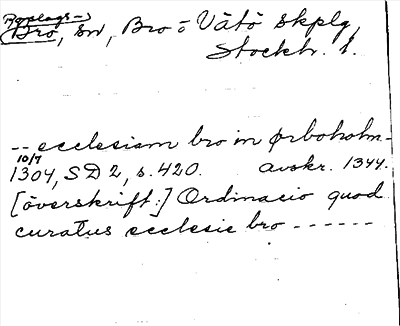 Roslags-
Bro, sn, Bro o Vätö skplg,
Stockh. l.
-- ecclesiam bro in ørboholm-
10/7
1304, SD 2, s. 420. avskr. 1344.
[överskrift:] Ordinacio quod
curatus ecclesie bro ------